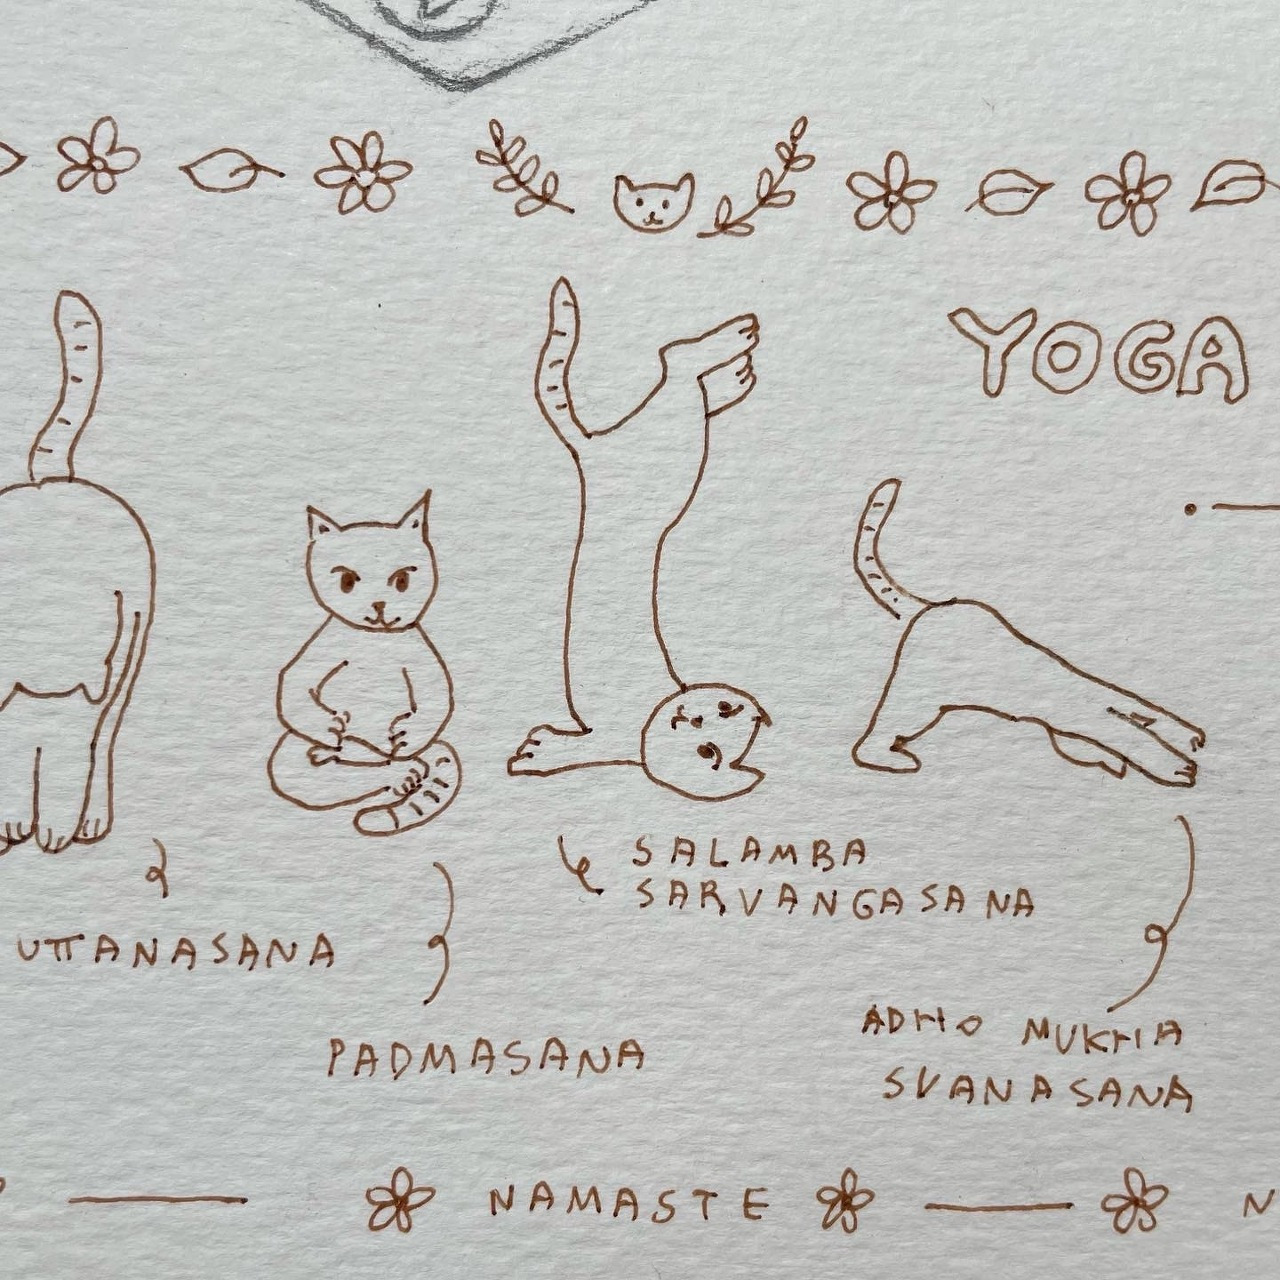 YOGA
SALAMBA
SARVANGASANA
UTTANASANA
ADHO MUKHA
PADMASANA
SVANASANA
NAMASTE